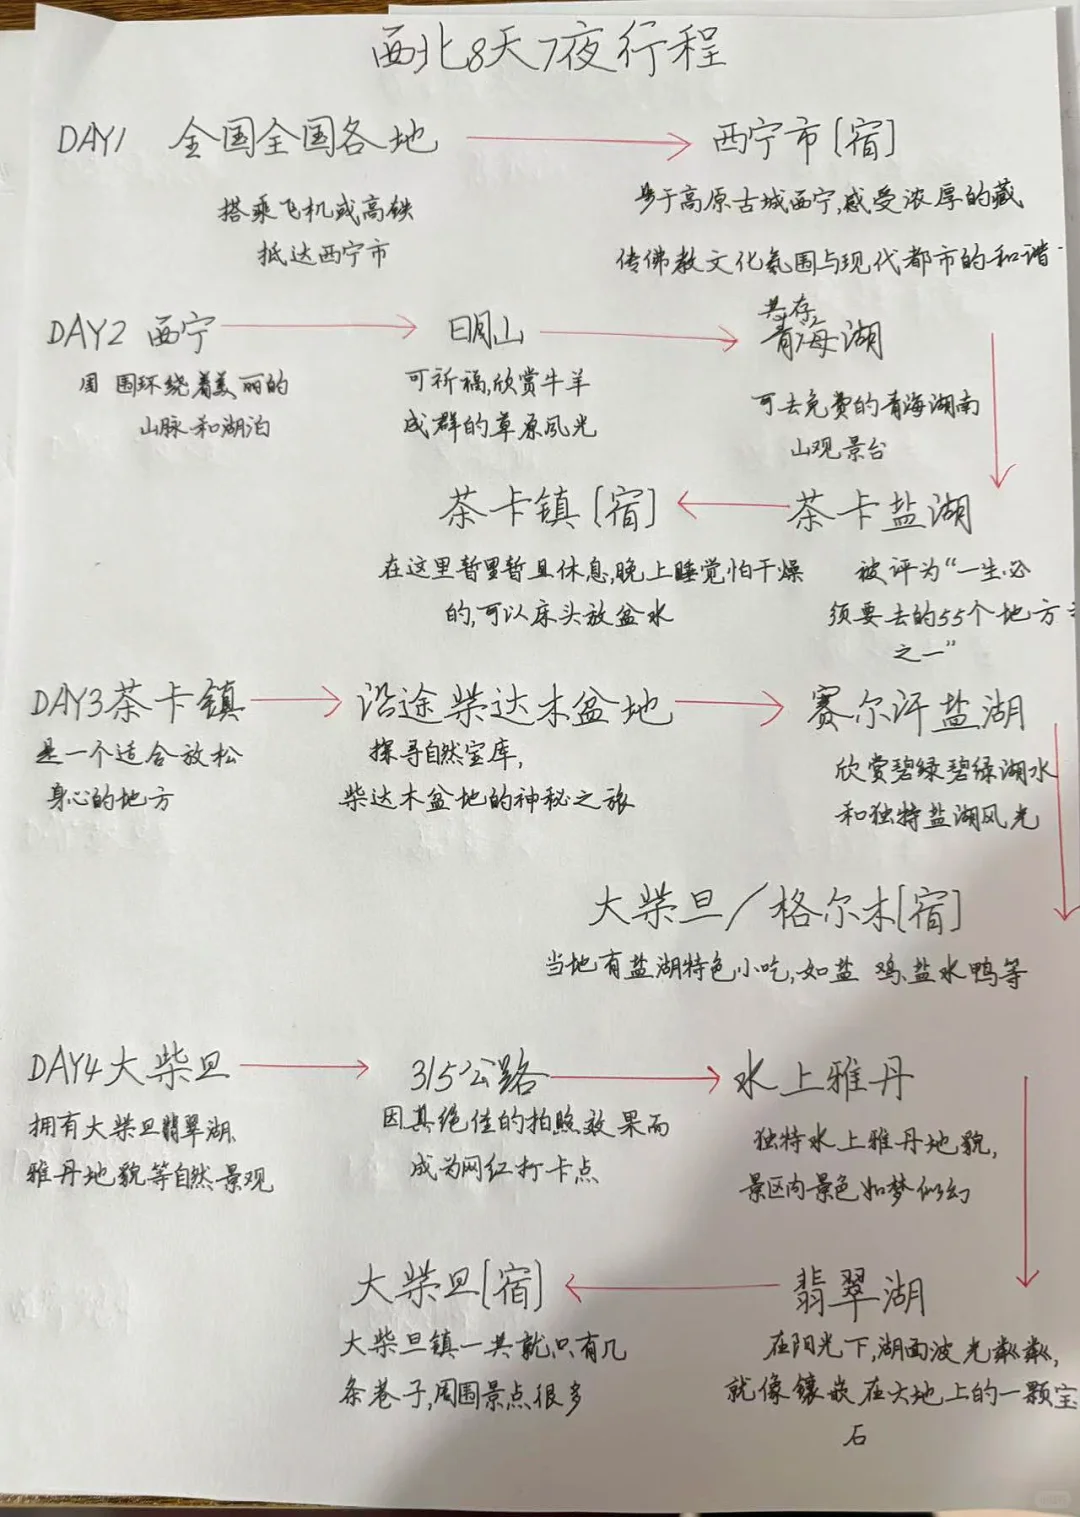 西北8天7夜行程
DAY1 全国全国各地 西宁市[宿]
搭乘飞机或高铁
抵达西宁市
步于高原古城西宁,感受浓厚的藏
传佛教文化氛围与现代都市的和谐
共存
DAY2 西宁 日月山 青海湖
周围环绕着美丽的
山脉和湖泊
可祈福,欣赏牛羊
成群的草原风光
可去免费的青海湖南
山观景台
茶卡镇[宿] 茶卡盐湖
在这里暂且休息,晚上睡觉怕干燥
的,可以床头放盆水
被评为“一生必
须要去的55个地方
之一”
DAY3茶卡镇 沿途柴达木盆地 赛尔汗盐湖
是一个适合放松
身心的地方
探寻自然宝库,
柴达木盆地的神秘之旅
欣赏碧绿碧绿湖水
和独特盐湖风光
大柴旦/格尔木[宿]
当地有盐湖特色小吃,如盐 鸡,盐水鸭等
DAY4大柴旦 315公路 水上雅丹
拥有大柴旦翡翠湖、
雅丹地貌等自然景观
因其绝佳的拍照效果而
成为网红打卡点
独特水上雅丹地貌,
景区内景色如梦似幻
大柴旦[宿] 翡翠湖
大柴旦镇一共就只有几
条巷子,周围景点很多
在阳光下,湖面波光粼粼,
就像镶嵌在大地上的一颗宝
石